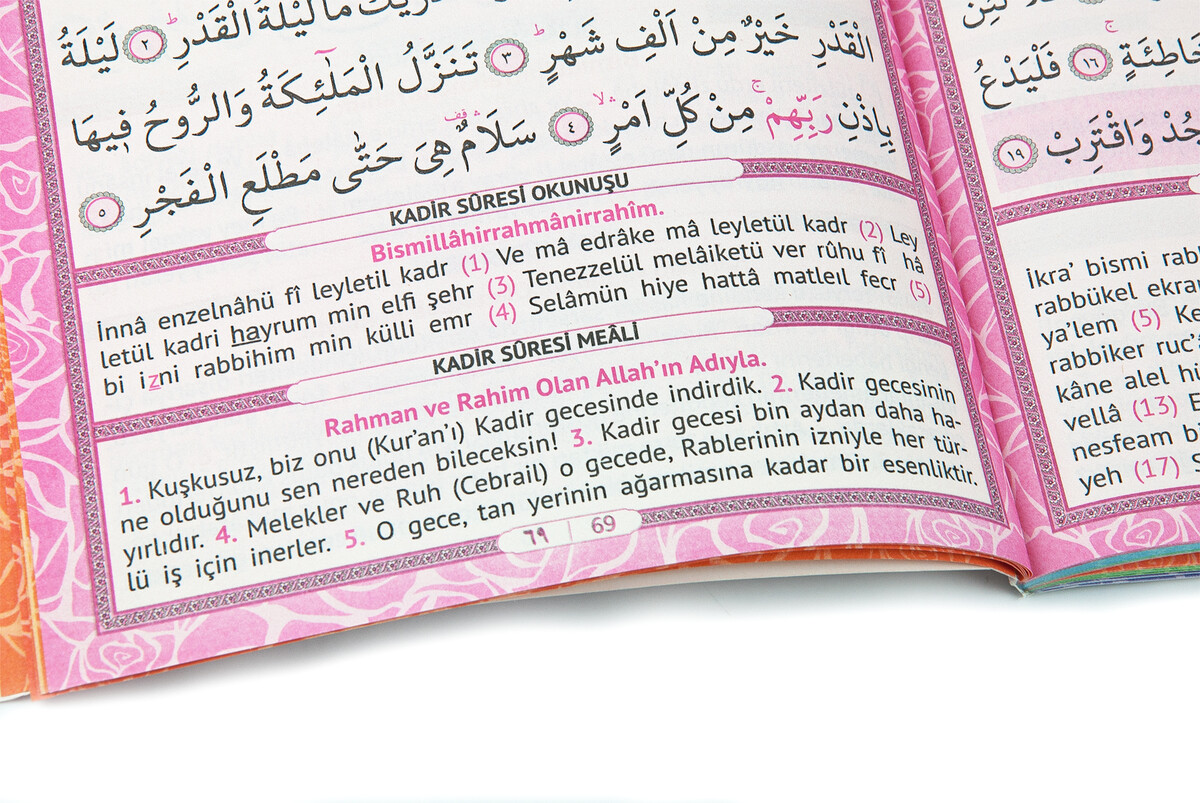 اَدْرٰيكَ مَا لَيْلَةُ الْقَدْرِ ﴿٢﴾ لَيْلَةُ
الْقَدْرِ خَيْرٌ مِنْ اَلْفِ شَهْرٍ ﴿٣﴾ تَنَزَّلُ الْمَلٰٓئِكَةُ وَالرُّوحُ ف۪يهَا
بِاِذْنِ رَبِّهِمْ مِنْ كُلِّ اَمْرٍ ﴿٤﴾ سَلَامٌ هِيَ حَتّٰى مَطْلَعِ الْفَجْرِ ﴿٥﴾
KADİR SÛRESİ OKUNUŞU
Bismillâhirrahmânirrahîm.
İnnâ enzelnâhü fî leyletil kadr (1) Ve mâ edrâke mâ leyletül kadr (2) Ley
letül kadri hayrum min elfi şehr (3) Tenezzelül melâiketü ver rûhu fî hâ
bi izni rabbihim min külli emr (4) Selâmün hiye hattâ matleıl fecr (5)
KADİR SÛRESİ MEÂLİ
Rahman ve Rahim Olan Allah’ın Adıyla.
1. Kuşkusuz, biz onu (Kur’an’ı) Kadir gecesinde indirdik. 2. Kadir gecesinin
ne olduğunu sen nereden bileceksin! 3. Kadir gecesi bin aydan daha ha-
yırlıdır. 4. Melekler ve Ruh (Cebrail) o gecede, Rablerinin izniyle her tür-
lü iş için inerler. 5. O gece, tan yerinin ağarmasına kadar bir esenliktir.
٦٩ | 69
خَاطِئَةٍ ﴿١٦﴾ فَلْيَدْعُ
وَاقْتَرِبْ ﴿١٩﴾
İkra’ bismi rab
rabbükel ekra
ya’lem (5) Ke
rabbiker ruc’
kâne alel hü
vellâ (13) E
nesfeam bi
yeh (17) S